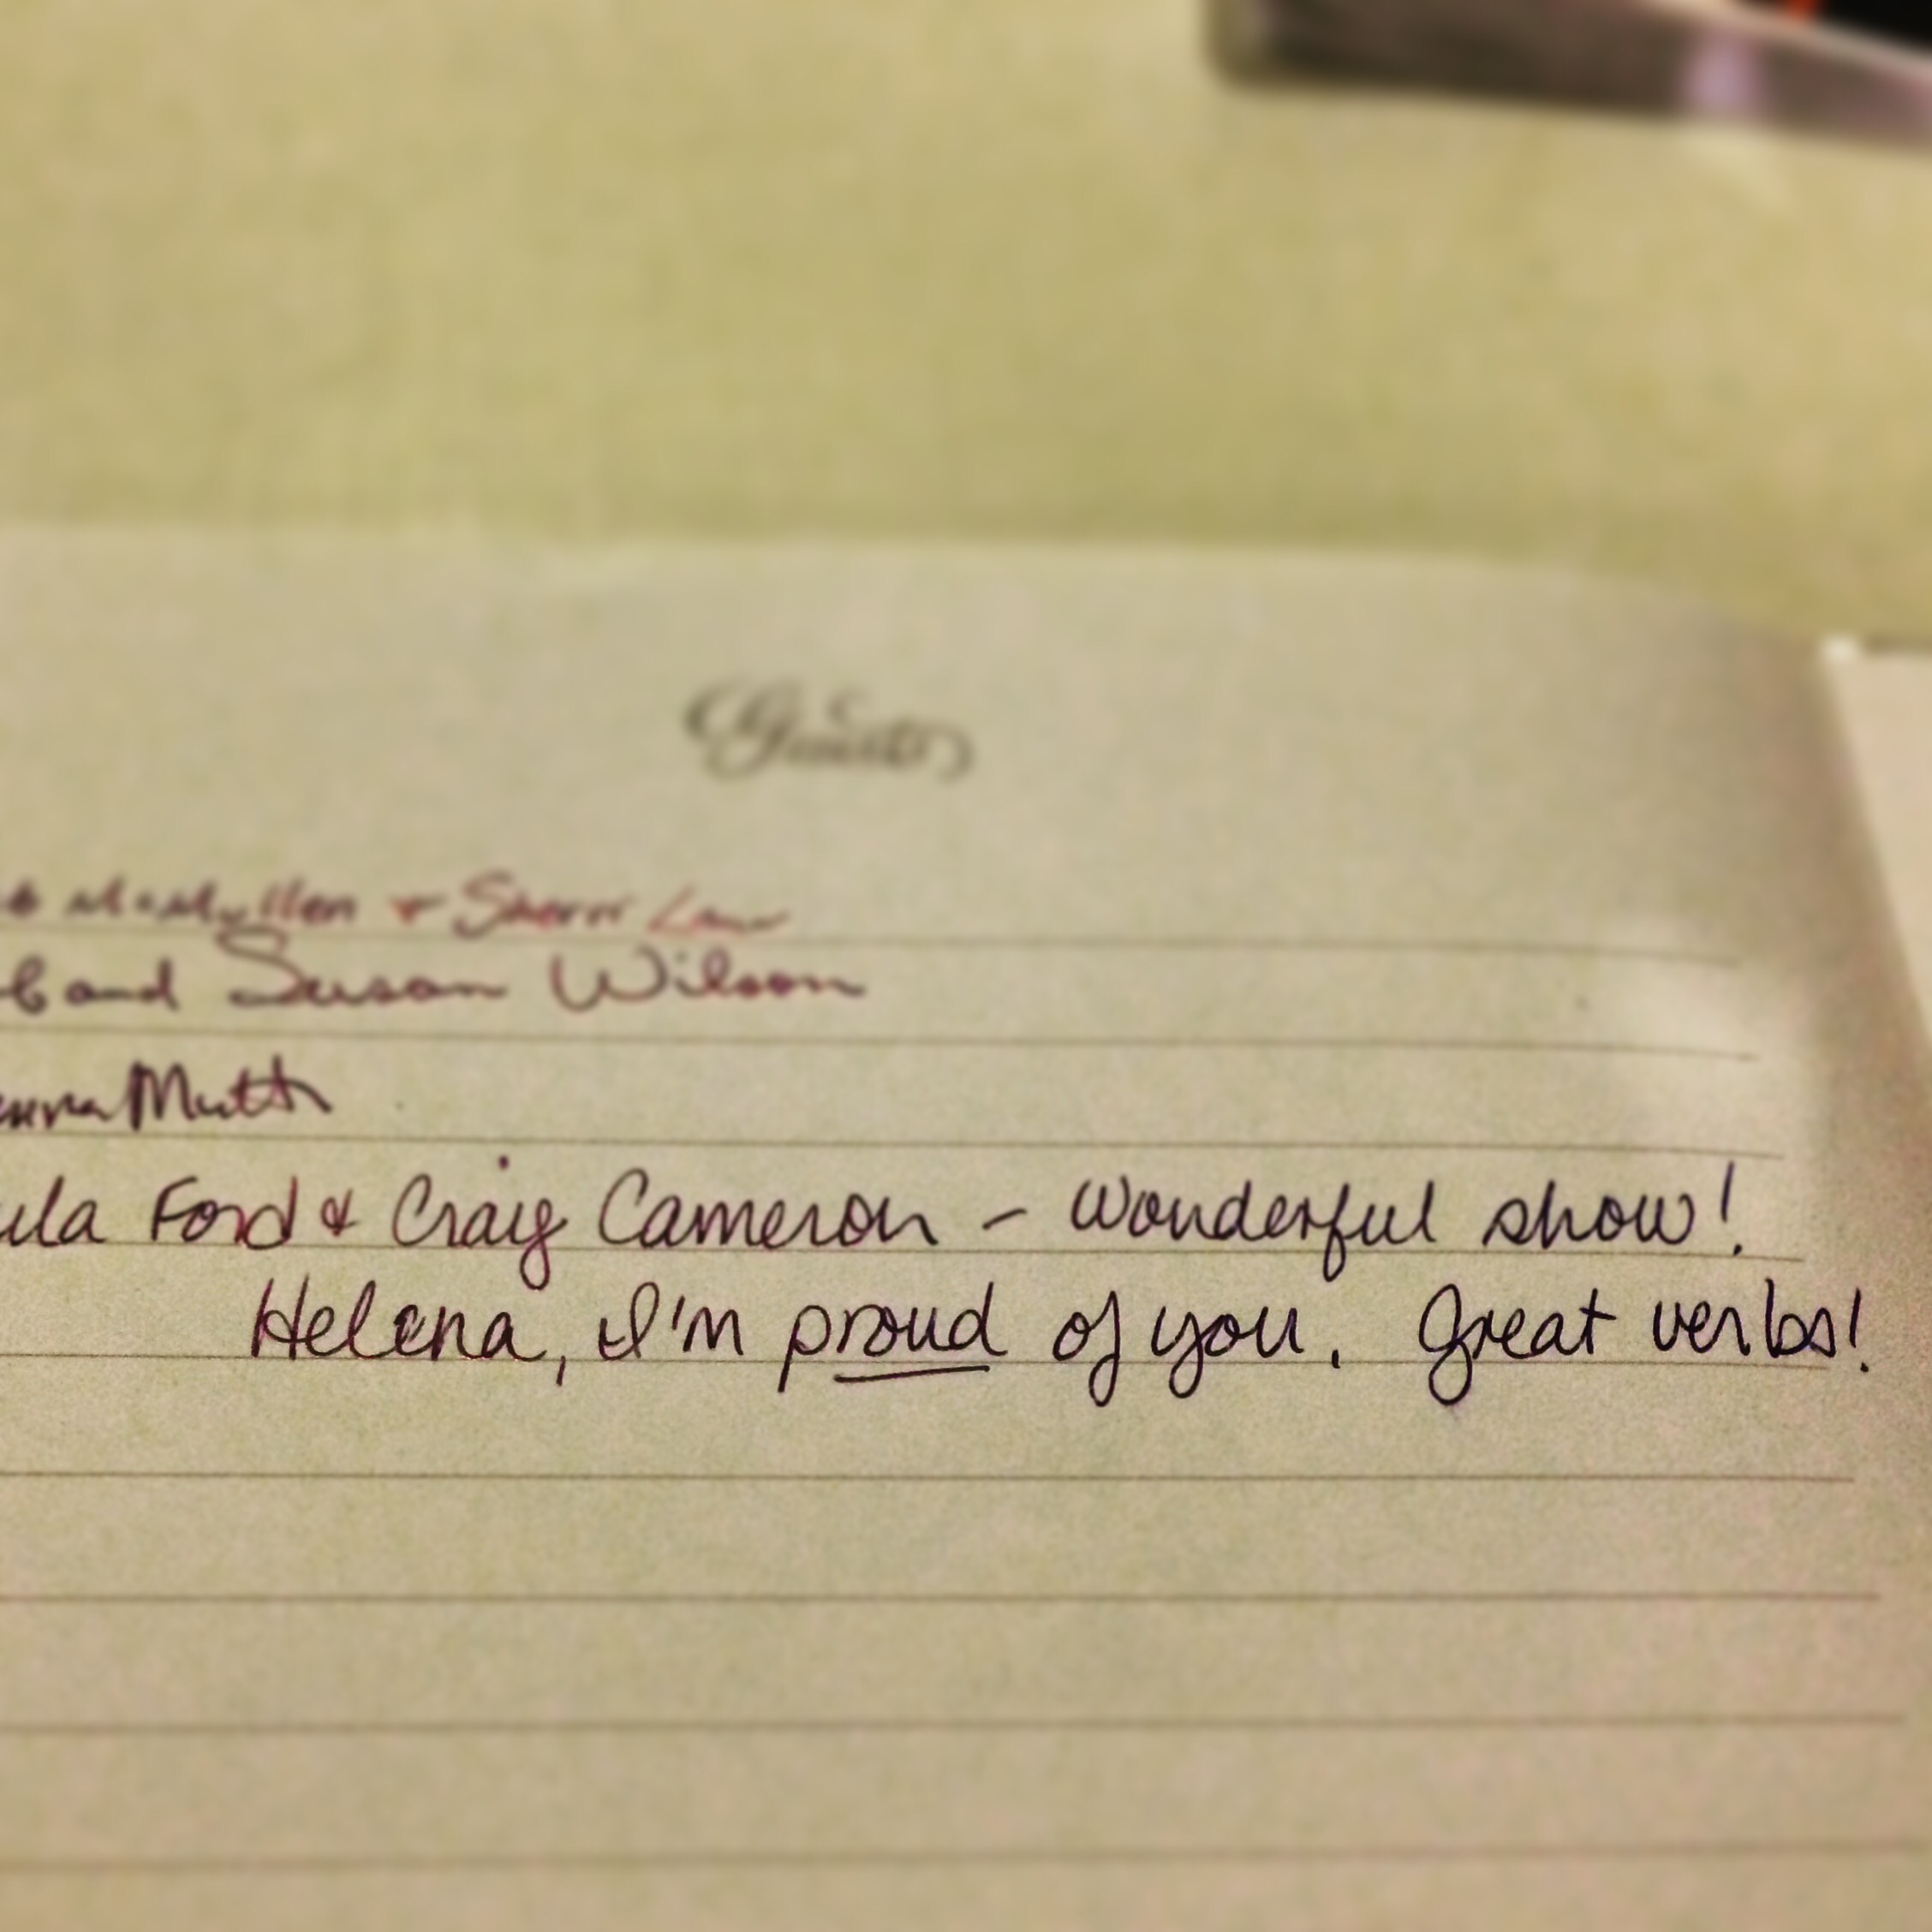 Guests
McMullen & Sherri Law
b and Susan Wilson
enna Muth
ula Ford & Craig Cameron – Wonderful show!
Helena, I'm proud of you. Great verbs!